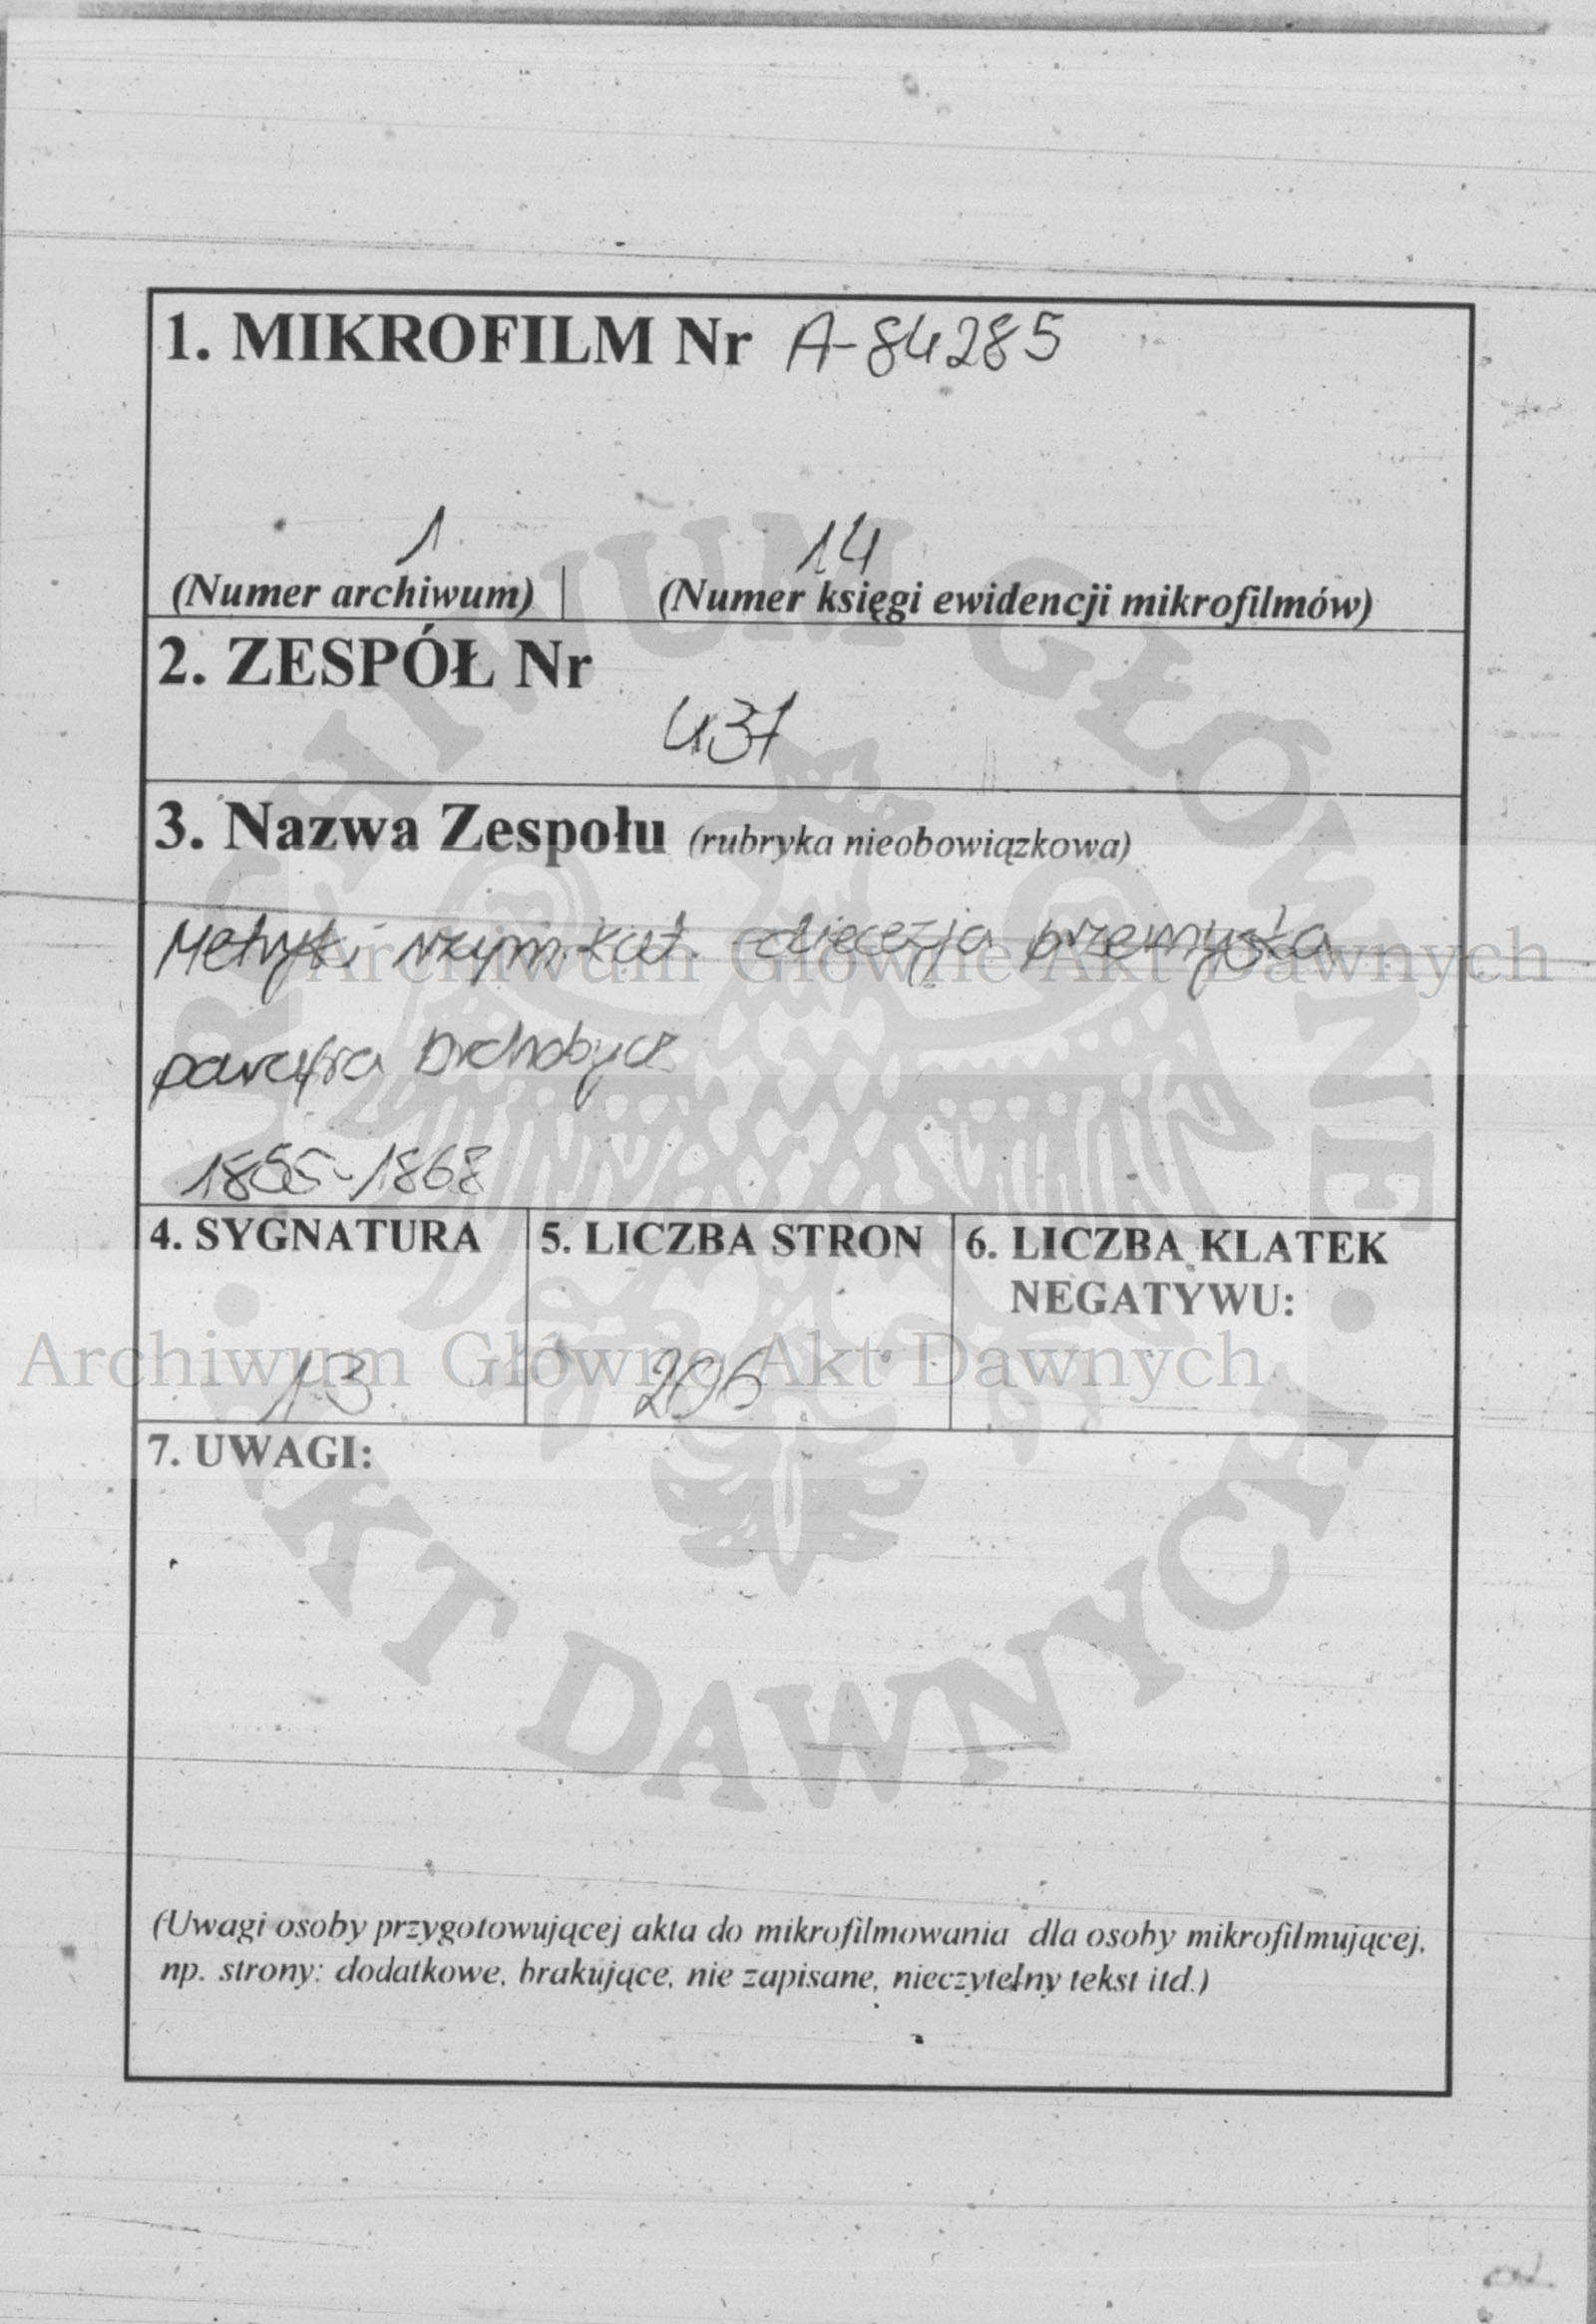 1. MIKROFILM Nr A-84285
1 14
(Numer archiwum) (Numer księgi ewidencji mikrofilmów)
2. ZESPÓŁ Nr
437
3. Nazwa Zespołu (rubryka nieobowiązkowa)
Metryki rzym.kat. diecezja przemyska
Archiwum Główne Akt Dawnych
parafia Drohobycz
1855-1868
4. SYGNATURA 5. LICZBA STRON 6. LICZBA KLATEK
NEGATYWU:
13 206
Archiwum Główne Akt Dawnych
7. UWAGI:
ARCHIWUM GŁÓWNE AKT DAWNYCH
(Uwagi osoby przygotowującej akta do mikrofilmowania dla osoby mikrofilmującej,
np. strony: dodatkowe, brakujące, nie zapisane, nieczytelny tekst itd.)